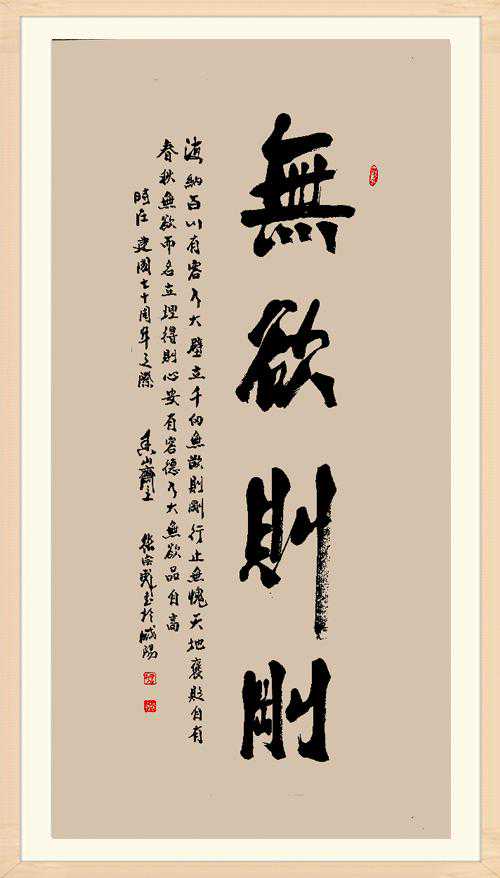 無欲則剛
海納百川有容乃大壁立千仞無欲則剛行止無愧天地褒貶自有
春秋無欲而名立理得則心安有容德乃大無欲品自高
時在建國七十周年之際 山齋主 書於咸陽